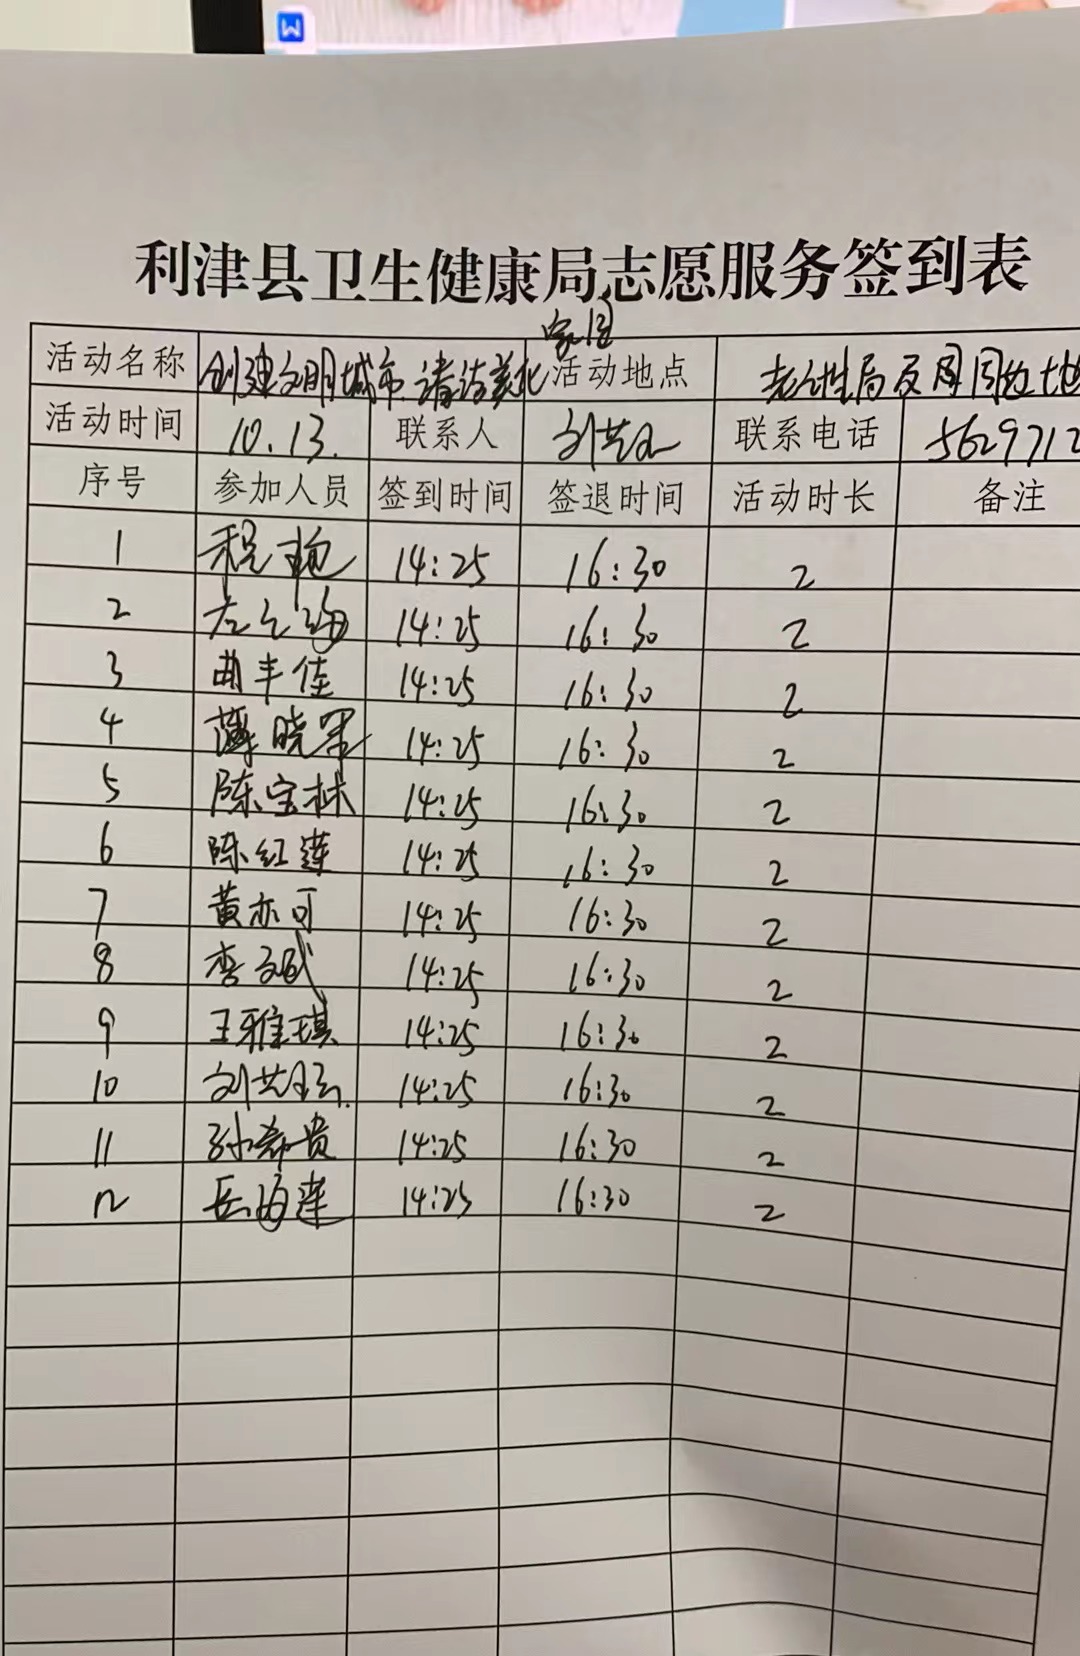 利津县卫生健康局志愿服务签到表
家园
活动名称 创建文明城市 清洁美化 活动地点 老 局及周围
活动时间 10.13. 联系人 刘 联系电话 5629712
序号 参加人员 签到时间 签退时间 活动时长 备注
1 程艳 14:25 16:30 2
2 14:25 16:30 2
3 曲丰佳 14:25 16:30 2
4 薄晓军 14:25 16:30 2
5 陈宝林 14:25 16:30 2
6 陈红莲 14:25 16:30 2
7 黄亦可 14:25 16:30 2
8 李文斌 14:25 16:30 2
9 王雅琪 14:25 16:30 2
10 刘 14:25 16:30 2
11 孙希贵 14:25 16:30 2
12 岳海莲 14:25 16:30 2